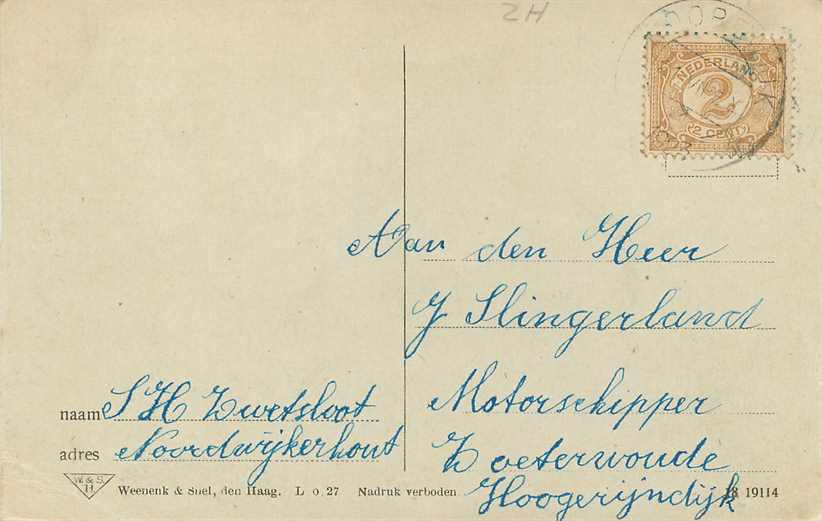 2H
NEDERLAND
2
2 CENT
Aan den Heer
J Slingerland
Motorschipper
Zoeterwoude
Hoogerijndijk
naam S H Zwetsloot
adres Noordwijkerhout
W. & S.
H.
Weenenk & Snel, den Haag. L. o. 27 Nadruk verboden 18 19114